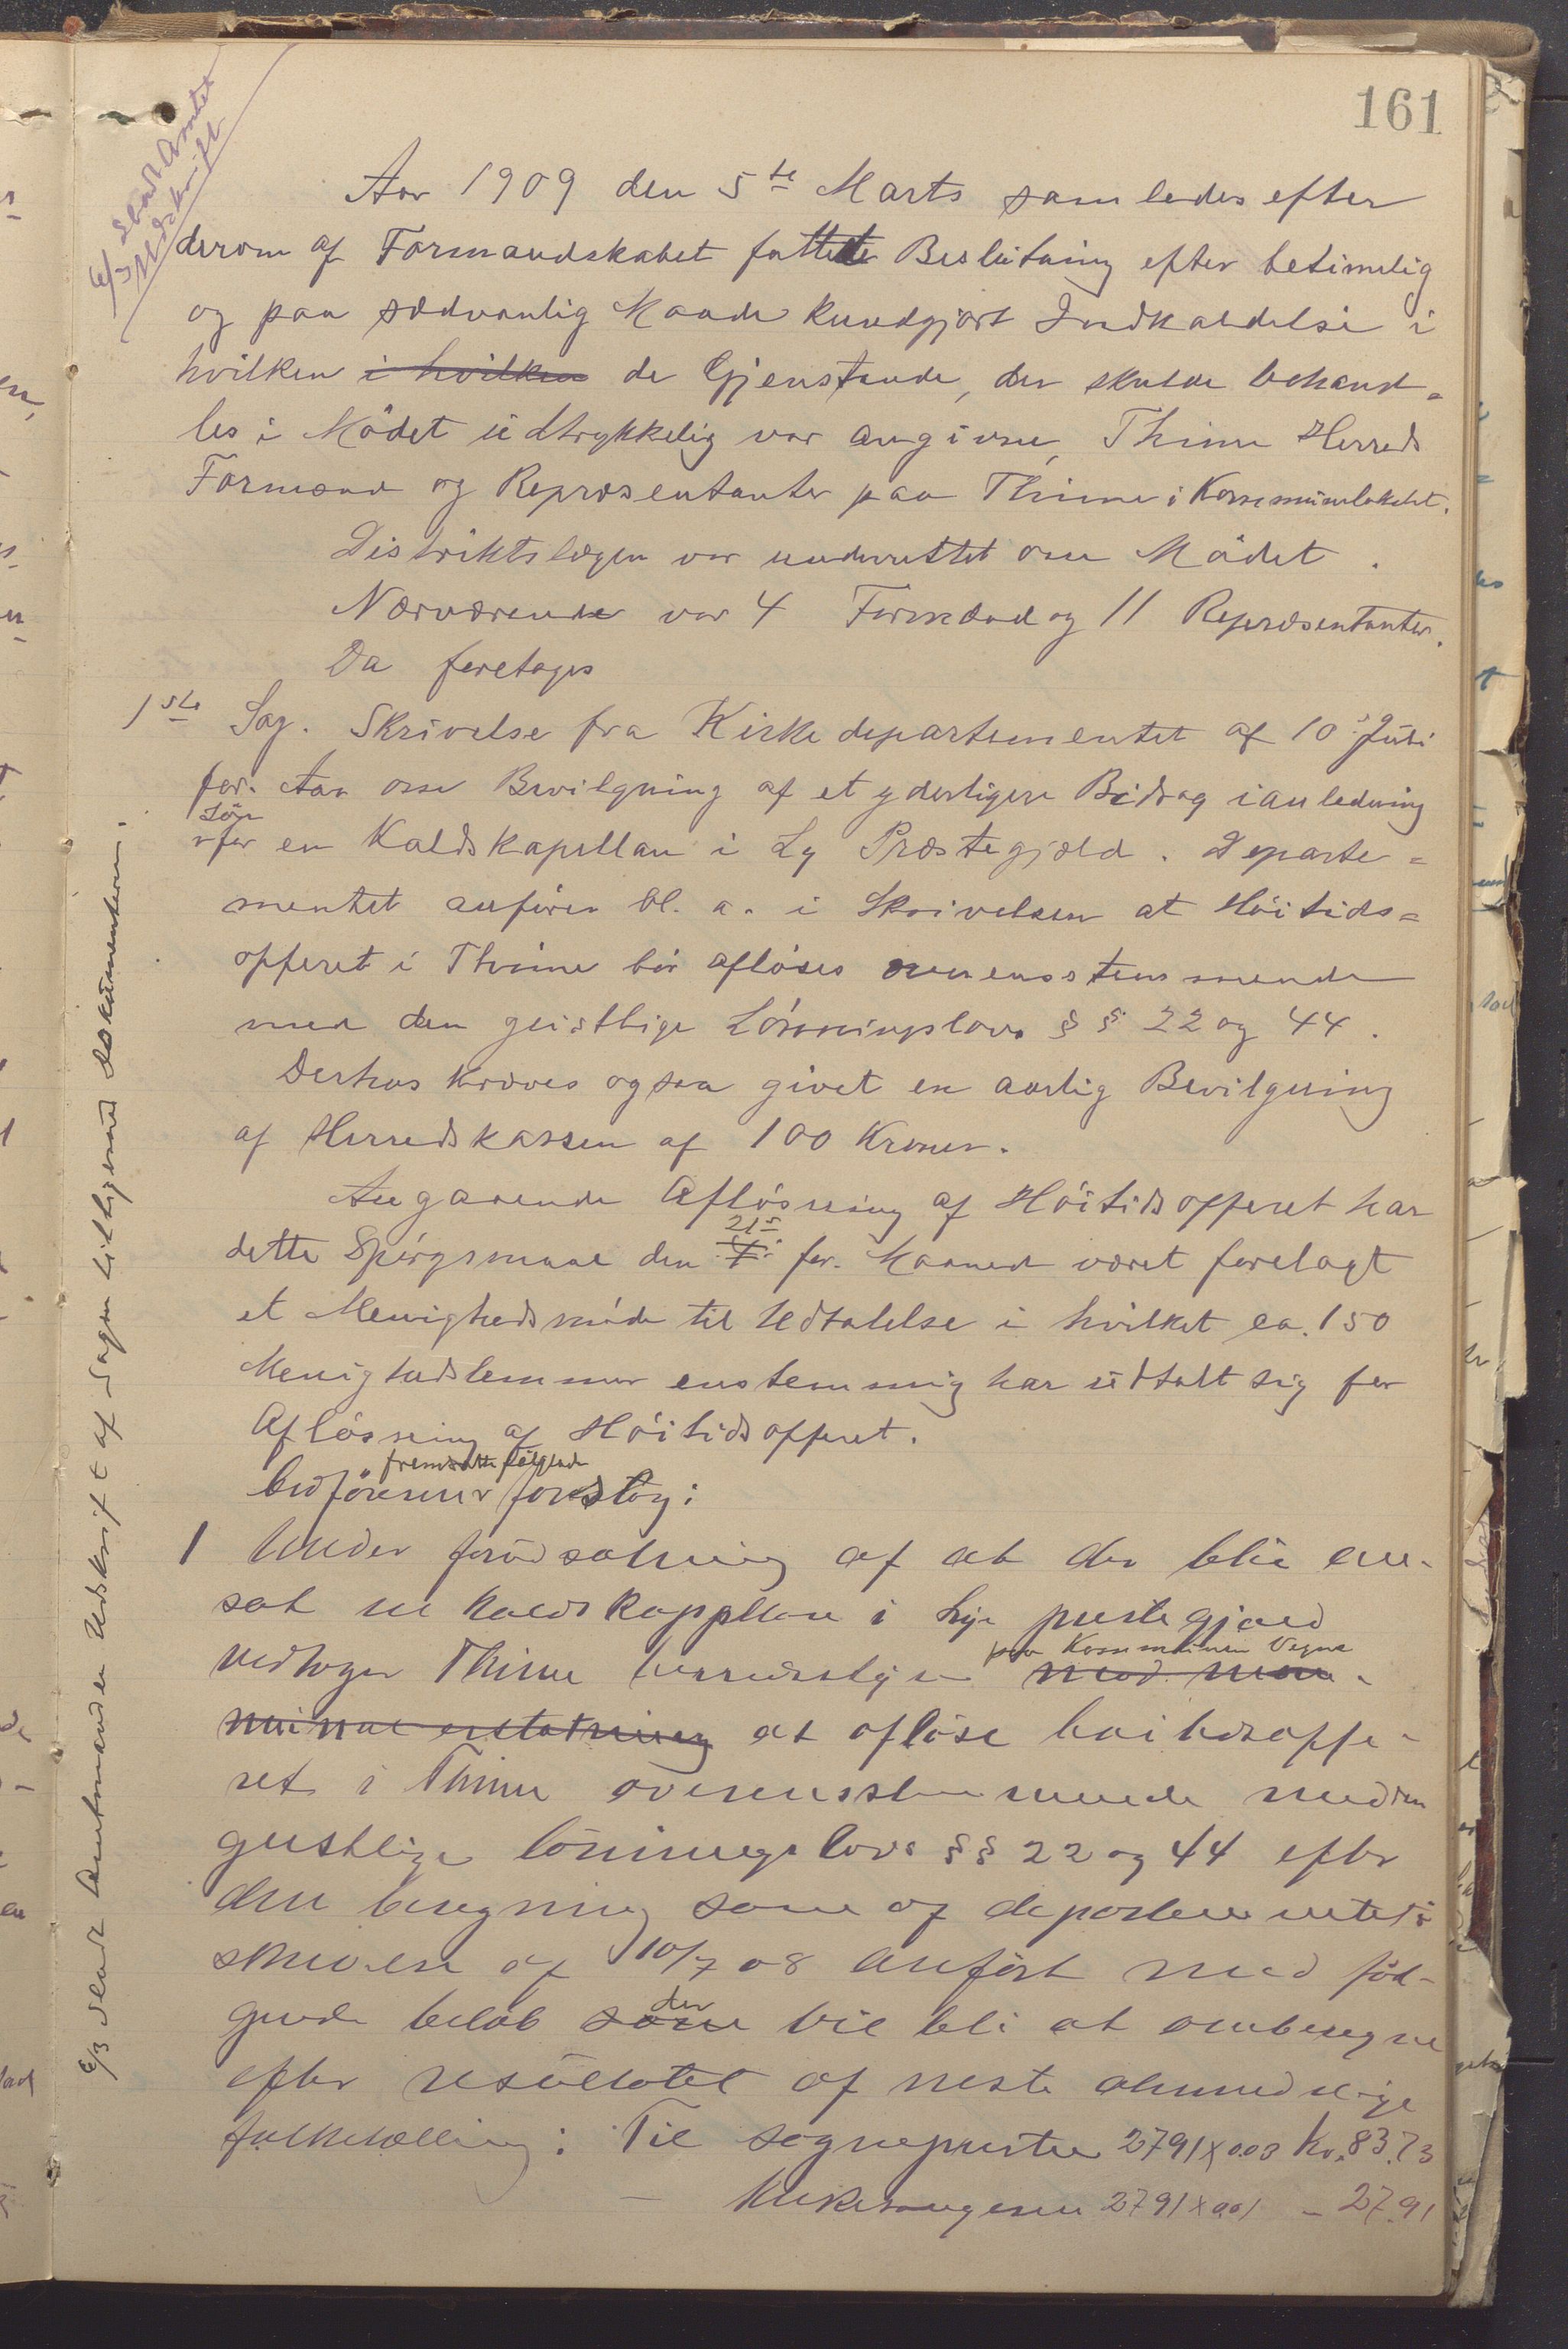 161
E/3 Stadt Amtet
Udskrift
Aar 1909 den 5te Marts samledes efter
derom af Formandskabet fattede Beslutning efter betimelig
og paa sædvanlig Maade kundgjort Indkaldelse i
hvilken i hvilken de Gjenstande, der skulde behand-
les i Mödet udtrykkelig var angivne, Thime Herreds
Formænd og Repræsentanter paa Thime i Kommunelokalet.
Distriktslægen var underrettet om Mödet.
Nærværende var 4 Formænd og 11 Repræsentanter.
Da foretages
1ste Sag. Skrivelse fra Kirkedepartementet af 10' Juli
for. Aar om Bevilgning af et yderligere Bidrag i anledning
Lön
for en Kaldskapellan i Ly Præstegjæld. Departe-
mentet anförer bl. a. i Skrivelsen at Höitids-
offeret i Thime bör aflöses overensstemmende
med den geistlige Lönningslovs §§ 22 og 44.
Derhos kræves ogsaa givet en aarlig Bevilgning
af Herredskassen af 100 Kroner.
Angaaende Aflösning af Höitidsofferet har
21'
dette Spörgsmaal den for. Maaned været forelagt
et Menighedsmöde til Udtalelse i hvilket ca. 150
Menighedslemmer enstemmig har udtalt sig for
Aflösning af Höitidsofferet.
fremsatte fölgende
Ordföreren forslag:
1 Under forudsætning af at der blir an-
sat en Kaldskappellan i Lye prestegjæld
paa Kommunens Vegne
vedtager Thime herredsstyre med mon-
minal erstatning at aflöse höitidsoffe-
ret i Thime overensstemmende med den
geistlige lönningslovs §§ 22 og 44 efter
den beregning som af departementet i
skrivelse af 10/7 08 anfört med föl-
der
gende belöb som vil bli at omberegne
efter resultatet af neste almindelige
folketælling: Til sognepresten 2791 x 0.03 Kr. 83.73
— Kirkesangeren 2791 x 0.01 - 27.91
E/3 sendt Amtmanden Udskrift af Sagen tilligemed Dokumenterne.